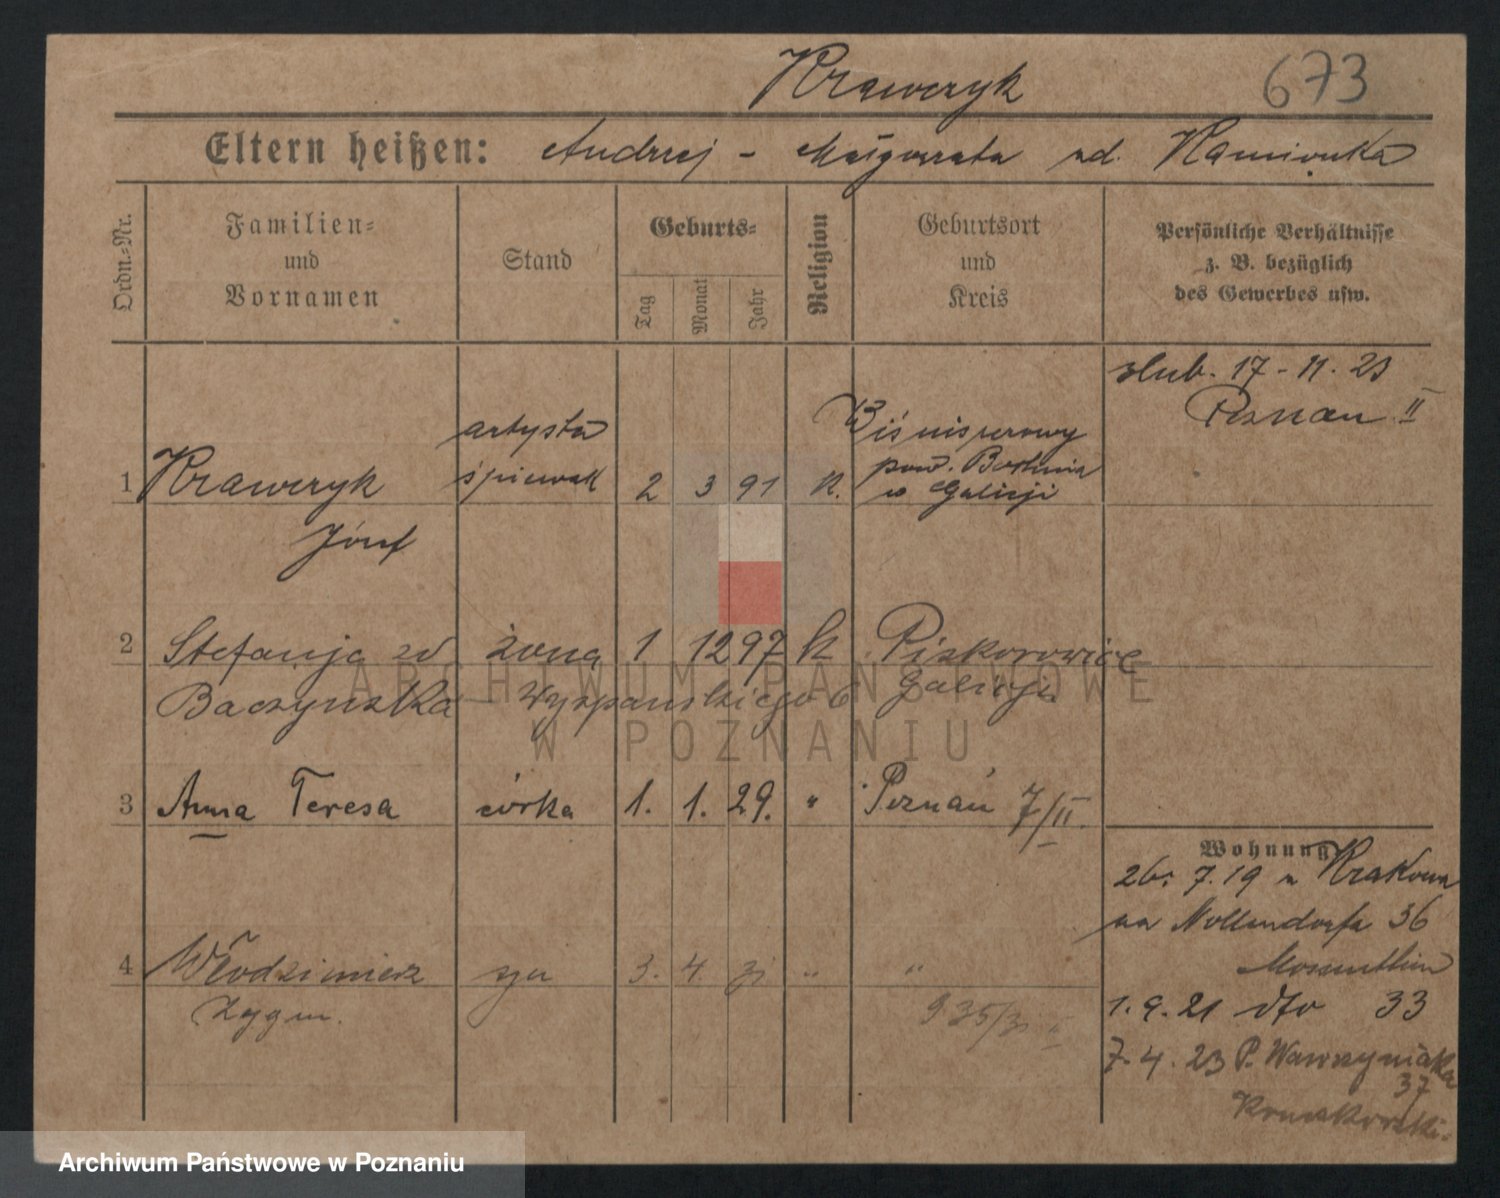 Krawczyk 673
Eltern heißen: Andrzej - Małgorzata zd. Kamionka
Ordn.-Nr.
Familien-
und
Vornamen
Stand
Geburts-
Tag
Monat
Jahr
Religion
Geburtsort
und
Kreis
Persönliche Verhältnisse
z. B. bezüglich
des Gewerbes usw.
ślub. 17-11.23
Poznań II
1 Krawczyk
Józef
artysta
śpiewak
2 3 91 K.
pow. Bochnia
w Galicji
2 Stefanja zd żona 1 12 97 K Piskorowice
Baczyńska Wyspiańskiego 6 Galicji
3 Anna Teresa córka 1. 1. 29. " Poznań 7/II
4 Włodzimierz syn 3. 4. 31 " "
Zygm. 935/31 II
Wohnung
26. 7. 19 z Krakowa
na Nollendorfa 36
1. 9. 21 dto 33
7. 4. 23 P. Wawrzyniaka
37
ARCHIWUM PAŃSTWOWE
W POZNANIU
Archiwum Państwowe w Poznaniu